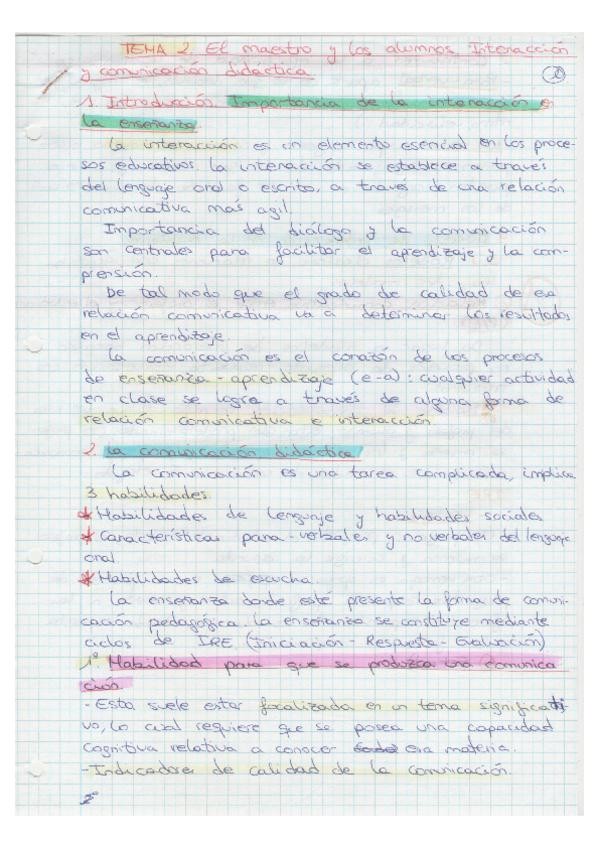 TEMA 2. El maestro y los alumnos. Interacción
y comunicación didáctica
1. Introducción. Importancia de la interacción en
la enseñanza
La interacción es un elemento esencial en los proce-
sos educativos. la interacción se establece a través
del lenguaje oral o escrito, a través de una relación
comunicativa mas agil.
Importancia del diálogo y la comunicación
son centrales para facilitar el aprendizaje y la com-
prensión.
De tal modo que el grado de calidad de esa
relación comunicativa va a determinar los resultados
en el aprendizaje.
La comunicación es el corazón de los procesos
de enseñanza - aprendizaje (e-a): cualquier actividad
en clase se logra a través de alguna forma de
relación comunicativa e interacción.
2. La comunicación didáctica
La comunicación es una tarea complicada, implica
3 habilidades
* Habilidades de lenguaje y habilidades sociales
* Características para-verbales y no verbales del lenguaje
oral
* Habilidades de escucha.
La enseñanza donde esté presente la forma de comuni-
cación pedagógica. La enseñanza se constituye mediante
ciclos de IRE (Iniciación - Respuesta - Evaluación)
1º Habilidad para que se produzca una comunica
ción
- Esta suele estar focalizada en un tema significati
vo, lo cual requiere que se posea una capacidad
cognitiva relativa a conocer esa materia.
- Indicadores de calidad de la comunicación.